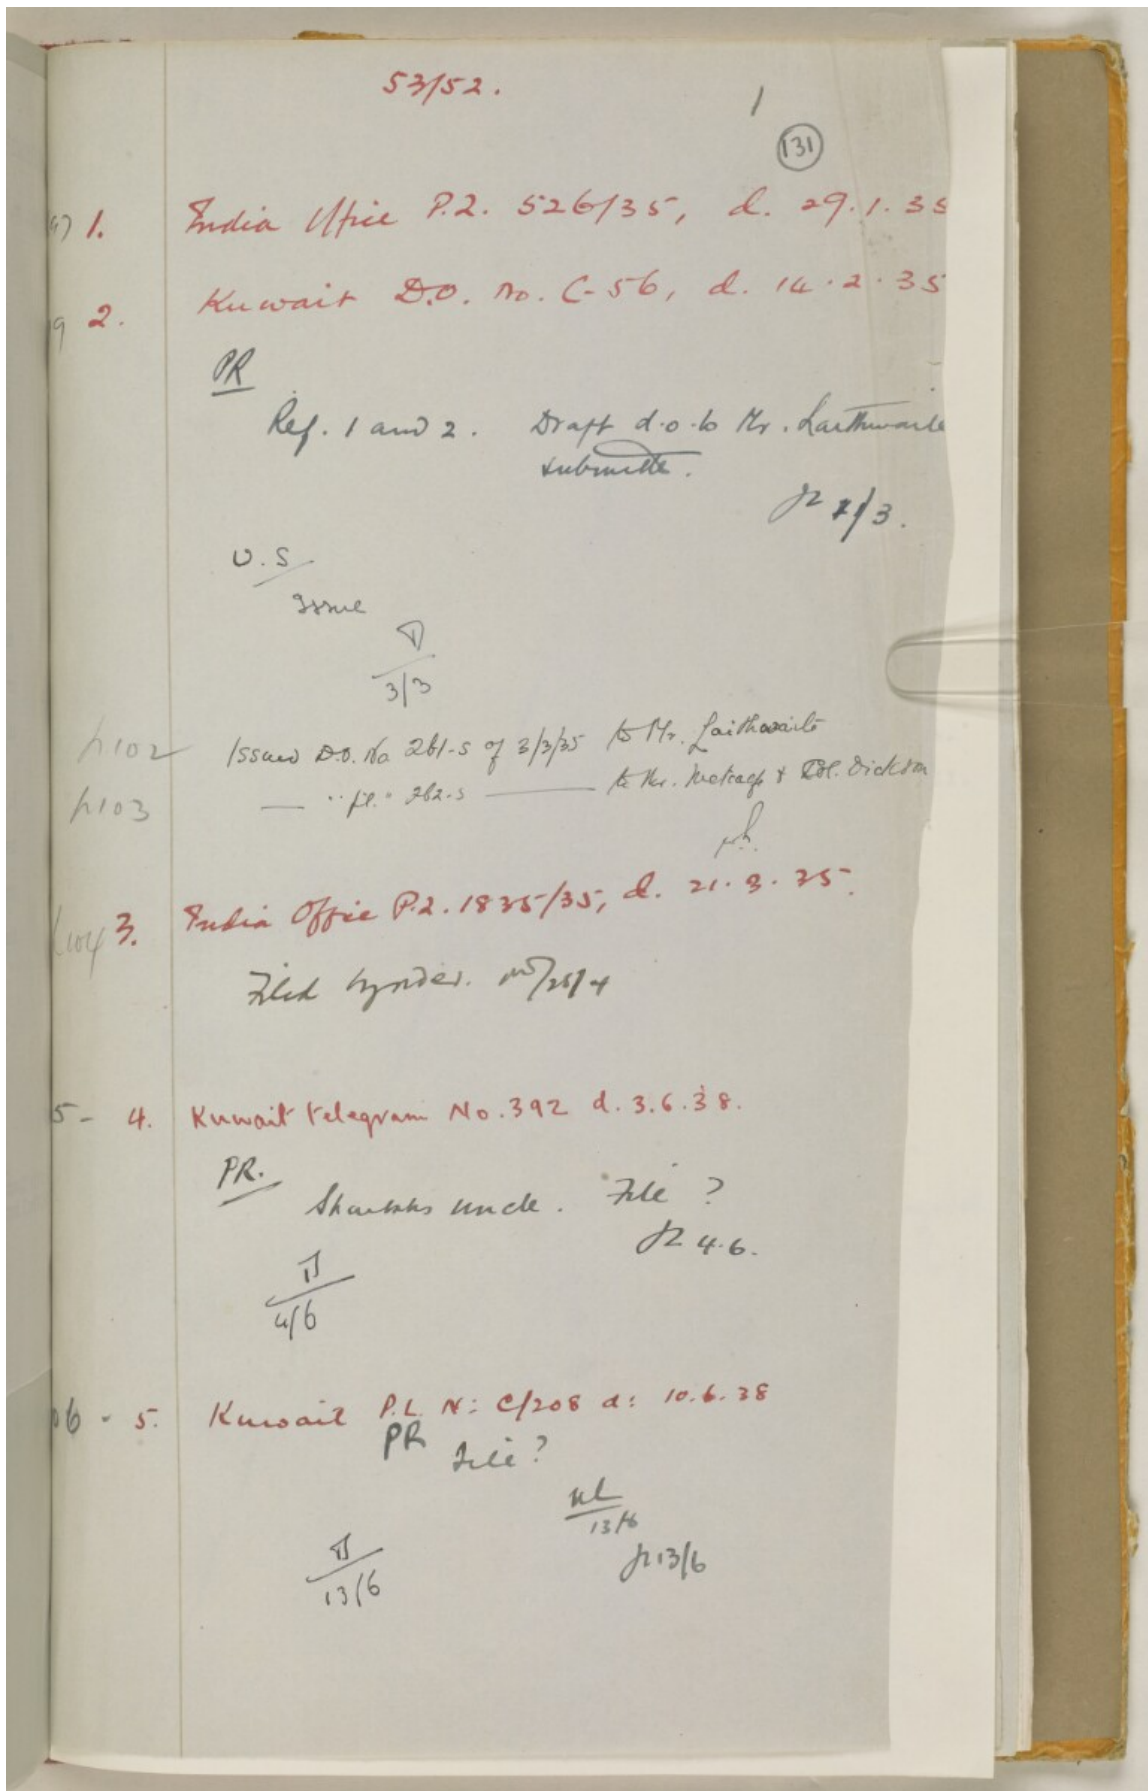 53/52.
1
131
1. India Office P.Z. 526/35, d. 29.1.35
2. Kuwait D.O. No. C-56, d. 14.2.35
PR
Ref. 1 and 2. Draft d.o. to Mr. Laithwaite
submitted.
/3.
U.S
Issue
3/3
p102 Issued D.O. No 261-S of 3/3/35 to Mr. Laithwaite
p103 — " p.l. " 262-S — to Mr. Metcalfe & Col. Dickson
3. India Office P.Z. 1835/35, d. 21.3.35.
Filed 25/4
5- 4. Kuwait telegram No. 392 d. 3.6.38.
PR.
Shaikhs uncle. File ?
4.6.
4/6
06 - 5. Kuwait P.L. No: C/208 d: 10.6.38
PR
File ?
13/6
13/6
13/6